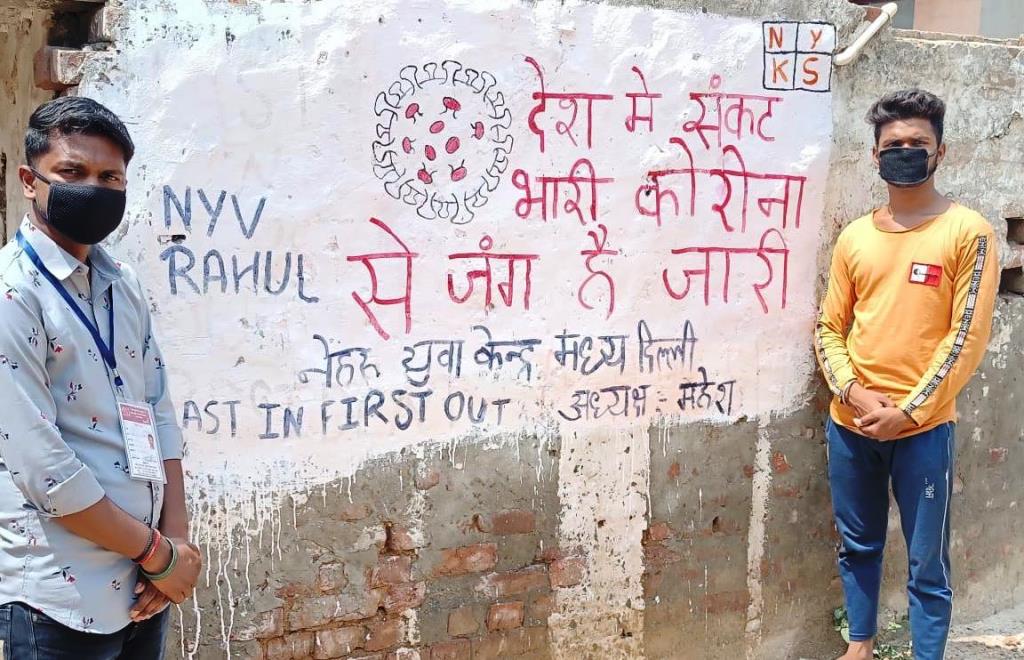 NY
KS
देश मे संकट
भारी कोरोना
से जंग है जारी
NYV
RAHUL
नेहरु युवा केन्द्र मध्य दिल्ली
AST IN FIRST OUT अध्यक्ष :- महेश